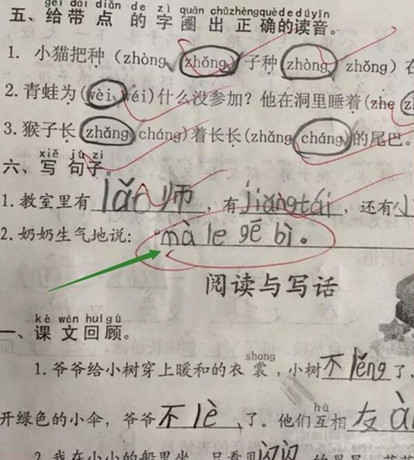 gěi dài diǎn de zì quān chūzhèngquèdedúyīn
五、给带点的字圈出正确的读音。
1. 小猫把种（zhòng zhǒng）子种（zhòng zhǒng）在
2. 青蛙为（wèi wéi）什么没参加？他在洞里睡着（zhe
3. 猴子长（zhǎng cháng）着长长（zhǎng cháng）的尾巴。
xiě jù zi
六、写句子。
1. 教室里有 lǎo师 ，有 jiǎngtái ，还有小
2. 奶奶生气地说： mà le gē bì 。
阅读与写话
kè wén huí gù
一、课文回顾。
shang
1. 爷爷给小树穿上暖和的衣裳，小树不 lěng 了，
hù
开绿色的小伞，爷爷不 lè 了。他们互相友 ài
2. 我在小小的船里坐，只看见闪闪